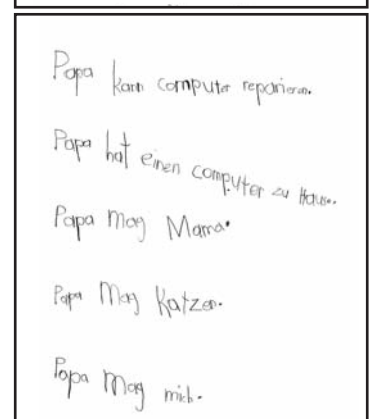 Papa kann computer reparieren.
Papa hat einen computer zu Hause.
Papa mag Mama.
Papa Mag Katzen.
Papa Mag mich.